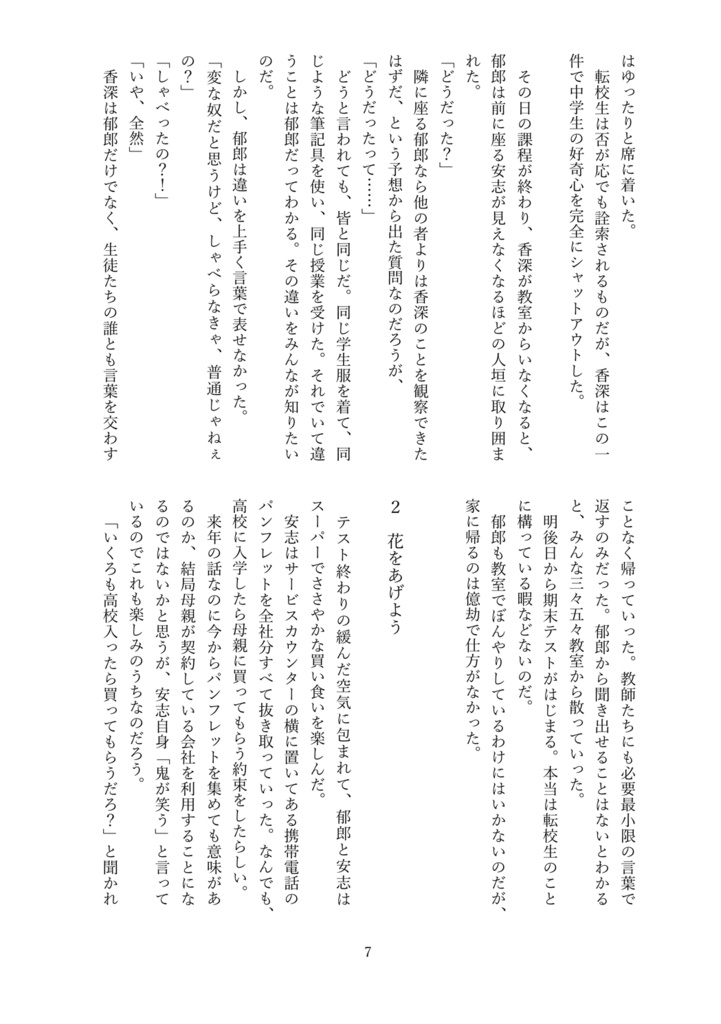 はゆったりと席に着いた。
転校生は否が応でも詮索されるものだが、香深はこの一
件で中学生の好奇心を完全にシャットアウトした。
その日の課程が終わり、香深が教室からいなくなると、
郁郎は前に座る安志が見えなくなるほどの人垣に取り囲ま
れた。
「どうだった？」
隣に座る郁郎なら他の者よりは香深のことを観察できた
はずだ、という予想から出た質問なのだろうが、
「どうだったって……」
どうと言われても、皆と同じだ。同じ学生服を着て、同
じような筆記具を使い、同じ授業を受けた。それでいて違
うことは郁郎だってわかる。その違いをみんなが知りたい
のだ。
しかし、郁郎は違いを上手く言葉で表せなかった。
「変な奴だと思うけど、しゃべらなきゃ、普通じゃねぇ
の？」
「しゃべったの？！」
「いや、全然」
香深は郁郎だけでなく、生徒たちの誰とも言葉を交わす
ことなく帰っていった。教師たちにも必要最小限の言葉で
返すのみだった。郁郎から聞き出せることはないとわかる
と、みんな三々五々教室から散っていった。
明後日から期末テストがはじまる。本当は転校生のこと
に構っている暇などないのだ。
郁郎も教室でぼんやりしているわけにはいかないのだが、
家に帰るのは億劫で仕方がなかった。
2 花をあげよう
テスト終わりの緩んだ空気に包まれて、郁郎と安志は
スーパーでささやかな買い食いを楽しんだ。
安志はサービスカウンターの横に置いてある携帯電話の
パンフレットを全社分すべて抜き取っていった。なんでも、
高校に入学したら母親に買ってもらう約束をしたらしい。
来年の話なのに今からパンフレットを集めても意味があ
るのか、結局母親が契約している会社を利用することにな
るのではないかと思うが、安志自身「鬼が笑う」と言って
いるのでこれも楽しみのうちなのだろう。
「いくろも高校入ったら買ってもらうだろ？」と聞かれ
7